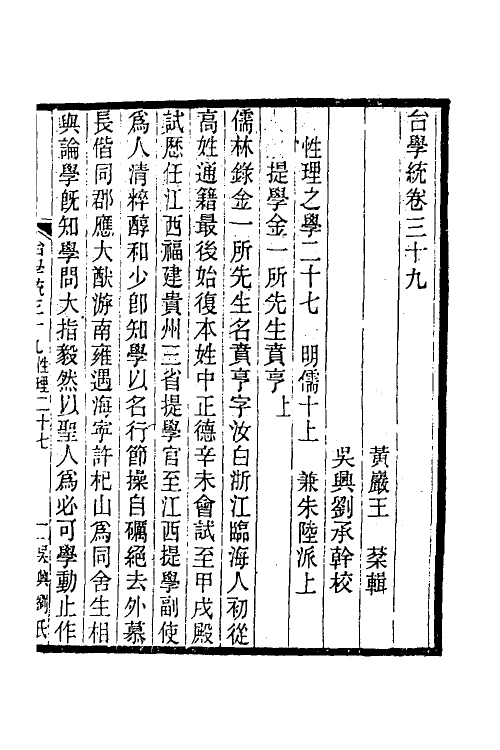 台學統卷三十九
黃巖王 棻輯
吳興劉承幹校
性理之學二十七 明儒十上 兼朱陸派上
提學金一所先生賁亨上
儒林錄金一所先生名賁亨字汝白浙江臨海人初從
高姓通籍最後始復本姓中正德辛未會試至甲戌殿
試歷任江西福建貴州三省提學官至江西提學副使
爲人清粹醇和少卽知學以名行節操自礪絕去外慕
長偕同郡應大猷游南雍遇海寧許杞山爲同舍生相
與論學旣知學問大指毅然以聖人爲必可學動止作
台學統三十九 性理二十七 一 吳興劉氏